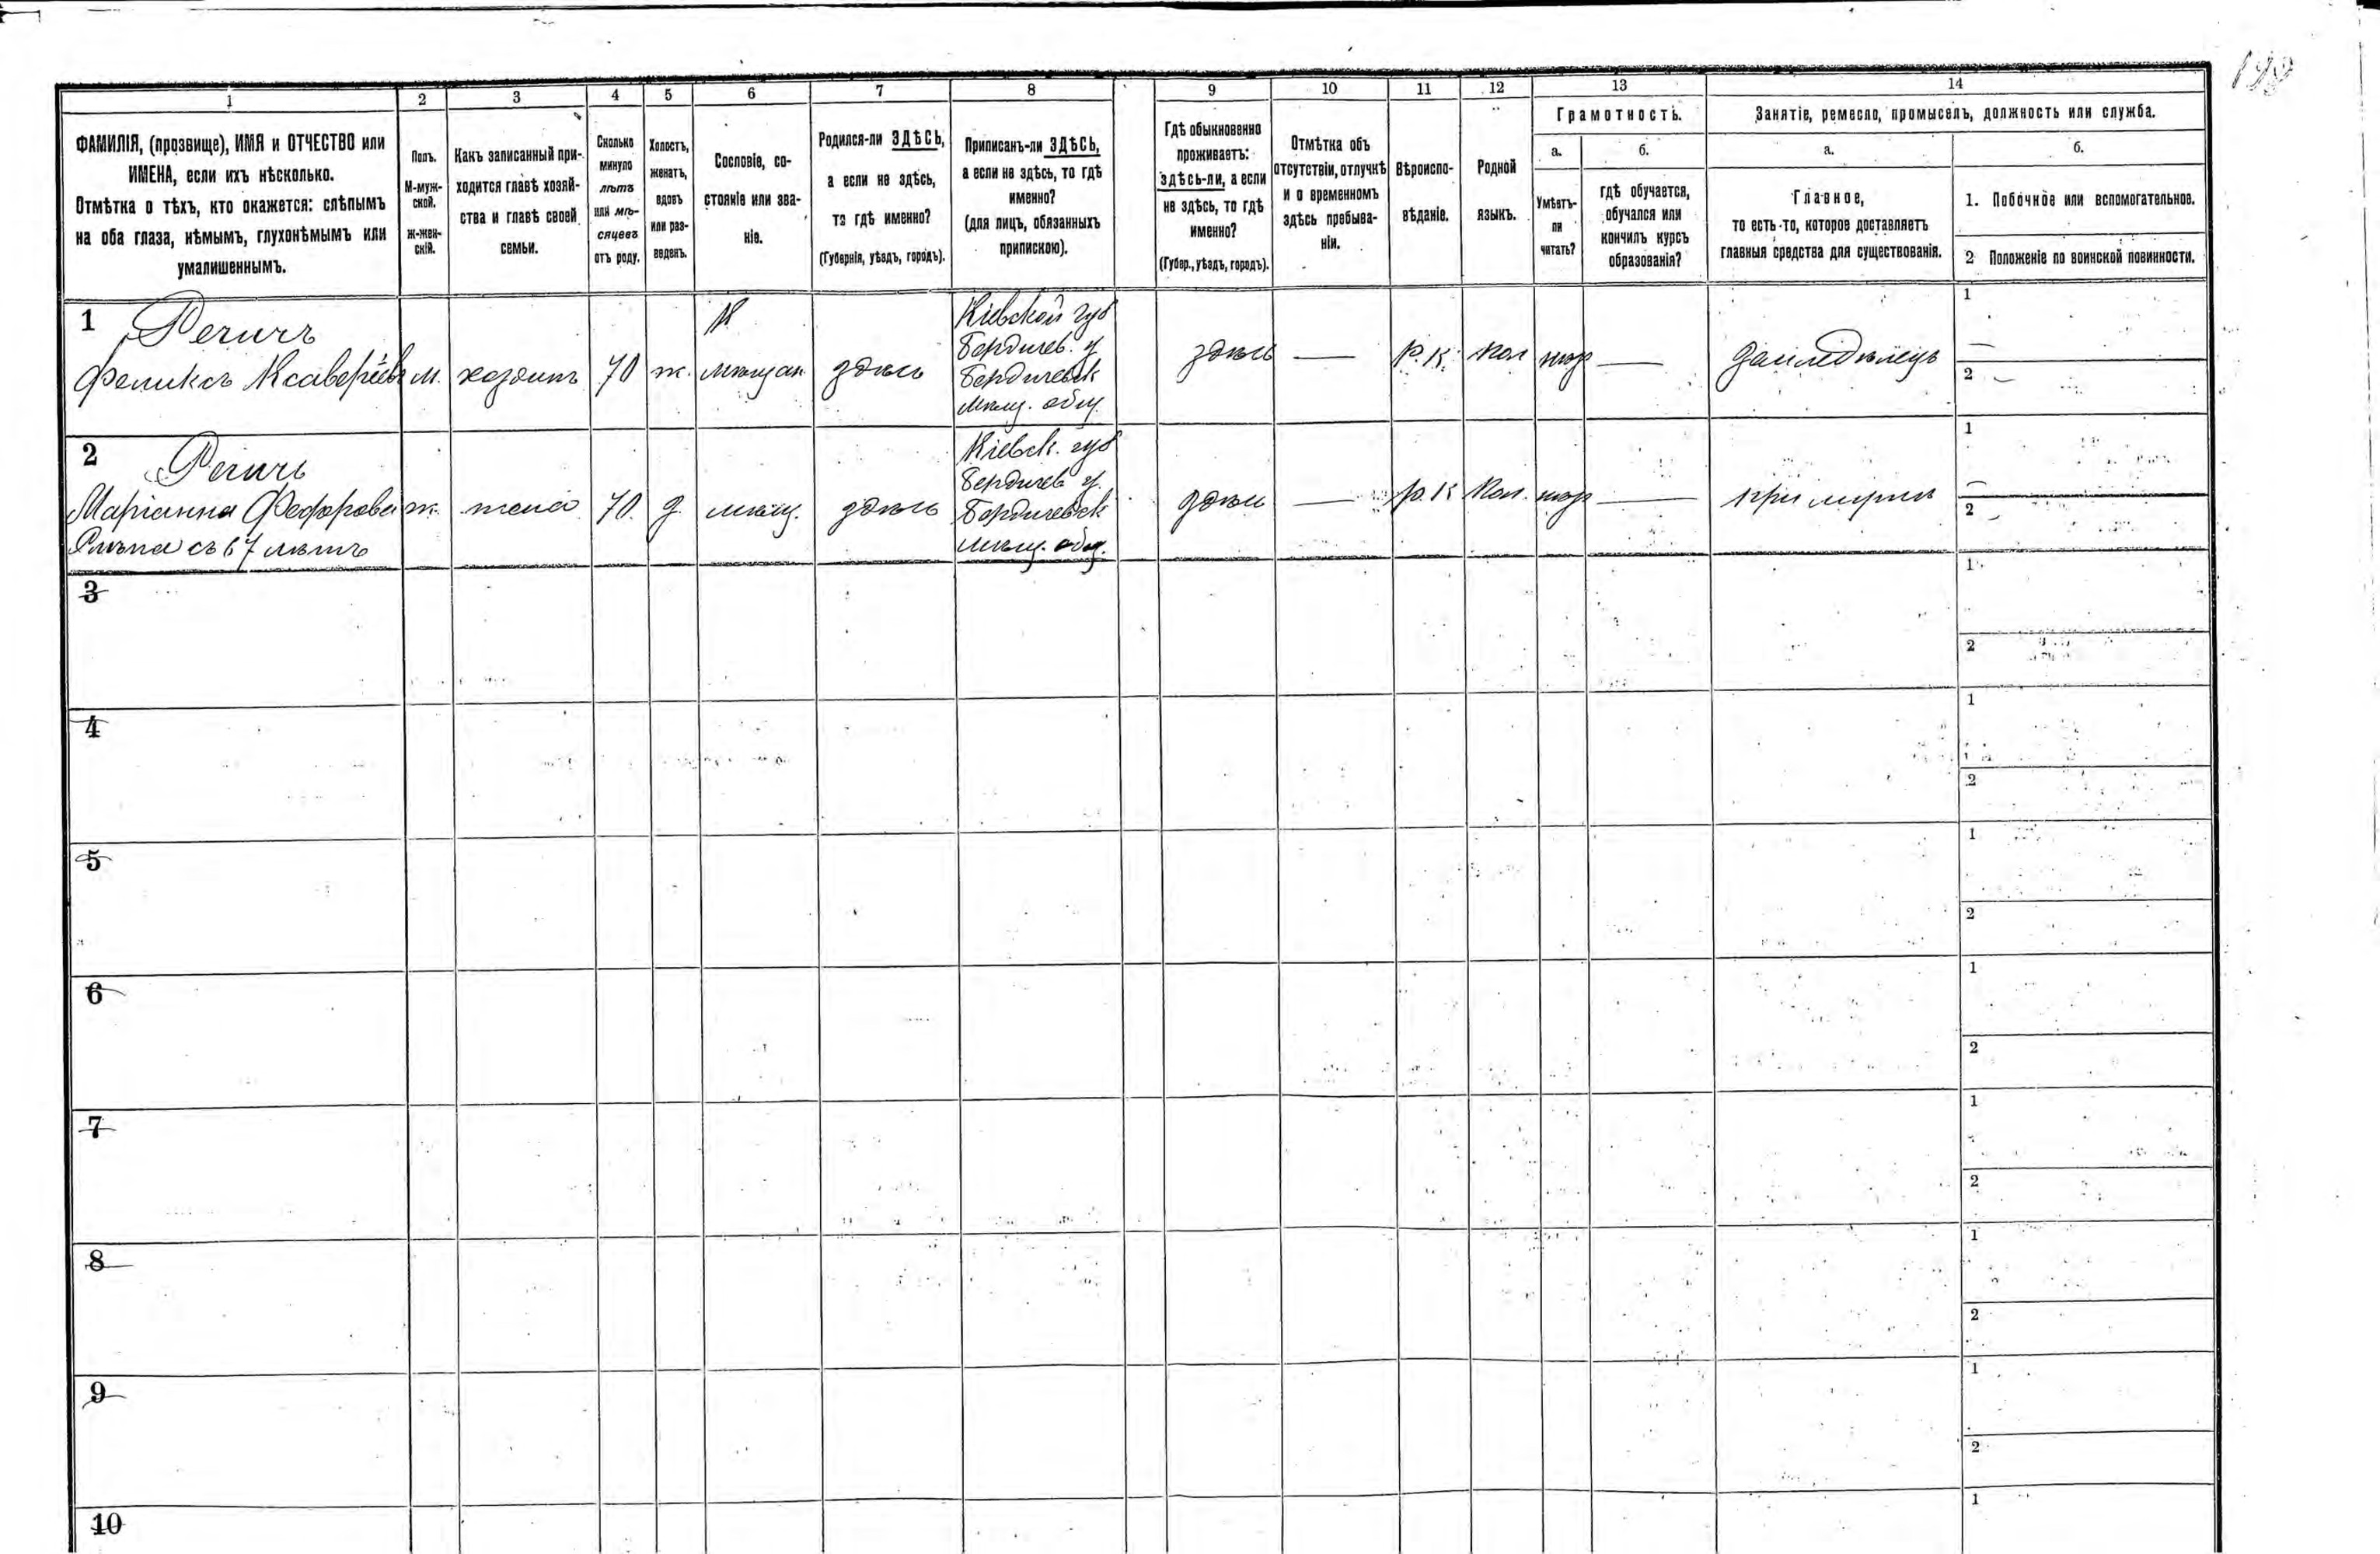 1 2 3 4 5 6 7 8 9 10 11 12 13 14
ФАМИЛІЯ, (прозвище), ИМЯ и ОТЧЕСТВО или
ИМЕНА, если ихъ нѣсколько.
Отмѣтка о тѣхъ, кто окажется: слѣпымъ
на оба глаза, нѣмымъ, глухонѣмымъ или
умалишеннымъ.
Полъ.
М-муж-
ской.
Ж-жен-
скій.
Какъ записанный при-
ходится главѣ хозяй-
ства и главѣ своей
семьи.
Сколько
минуло
лѣтъ
или мѣ-
сяцевъ
отъ роду.
Холостъ,
женатъ,
вдовъ
или раз-
веденъ.
Сословіе, со-
стояніе или зва-
ніе.
Родился-ли ЗДѢСЬ,
а если не здѣсь,
то гдѣ именно?
(Губернія, уѣздъ, городъ).
Приписанъ-ли ЗДѢСЬ,
а если не здѣсь, то гдѣ
именно?
(для лицъ, обязанныхъ
припискою).
Гдѣ обыкновенно
проживаетъ:
здѣсь-ли, а если
не здѣсь, то гдѣ
именно?
(Губер., уѣздъ, городъ).
Отмѣтка объ
отсутствіи, отлучкѣ
и о временномъ
здѣсь пребыва-
ніи.
Вѣроиспо-
вѣданіе.
Родной
языкъ.
Грамотность.
а.
Умѣетъ-
ли
читать?
б.
гдѣ обучается,
обучался или
кончилъ курсъ
образованія?
Занятіе, ремесло, промыселъ, должность или служба.
а.
Главное,
то есть-то, которое доставляетъ
главныя средства для существованія.
б.
1. Побочное или вспомогательное.
2 Положеніе по воинской повинности.
1
Феликсъ Ксаверіевъ
м.
хозяинъ
70
ж.
мѣщан
здѣсь
Кіевской губ
Бердичев. у
Бердичевск
мѣщ. общ.
здѣсь
—
р. к.
пол
—
1
—
2
2
Маріанна
Слѣпа съ 67 лѣтъ
ж.
жена
70.
з.
мѣщ.
здѣсь
Кіевск. губ
Бердичев у.
Бердичевск
мѣщ. общ.
здѣсь
—
р. к
пол.
—
при мужѣ
1
—
2
3
1
2
4
1
2
5
1
2
6
1
2
7
1
2
8
1
2
9
1
2
10
1